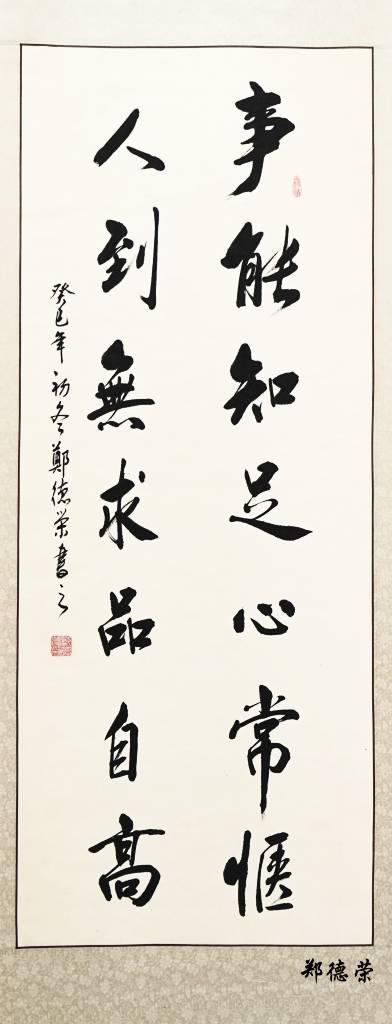 事能知足心常愜
人到無求品自高
癸巳年初冬鄭德荣書之
郑德荣